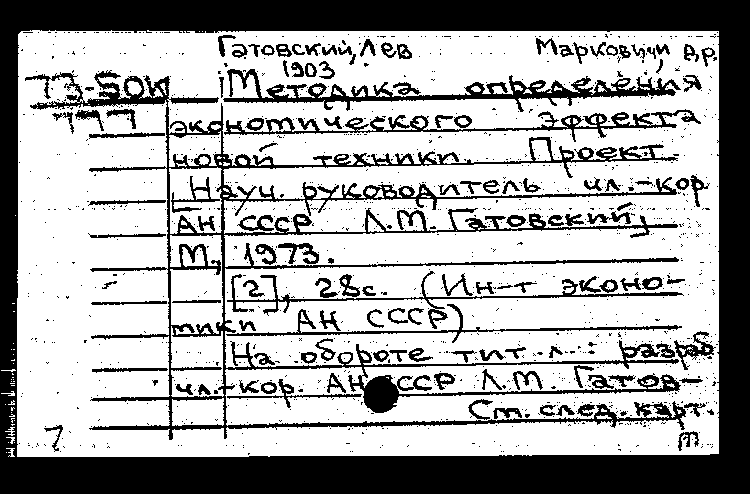 Гатовский, Лев Маркович, а.р.
1903
73-5OK Методика определения
777 экономического эффекта
новой техники. Проект.
[Науч. руководитель чл.-кор.
АН СССР Л.М. Гатовский]
М., 1973.
[2], 28с. (Ин-т эконо-
мики АН СССР).
На обороте тит. л.: разраб.
чл.-кор. АН СССР Л.М. Гатов-
См. след. карт.
7 т